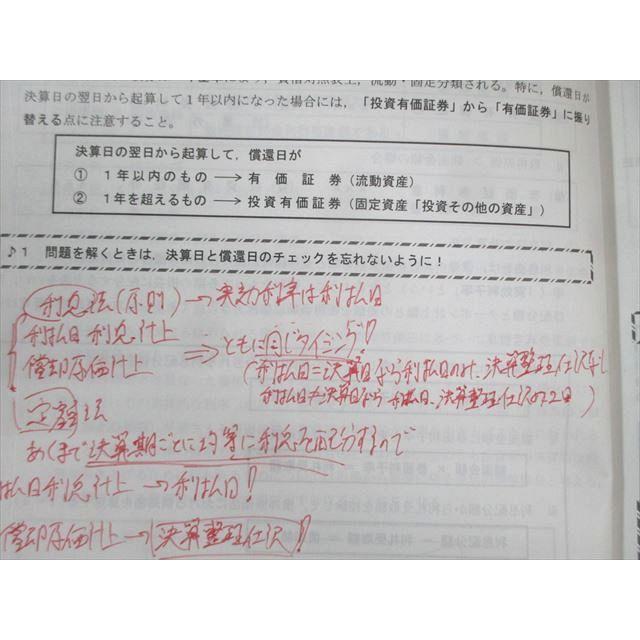 貸借対照表上，流動・固定分類される。特に，償還日が
決算日の翌日から起算して１年以内になった場合には，「投資有価証券」から「有価証券」に振り
替える点に注意すること。
決算日の翌日から起算して，償還日が
① １年以内のもの → 有価証券（流動資産）
② １年を超えるもの → 投資有価証券（固定資産「投資その他の資産」）
♪1 問題を解くときは，決算日と償還日のチェックを忘れないように！
利息法(原則) → 実効利率は利払日
利払日利息計上
償却原価計上 ⇒ ともに同じタイミング!
(利払日=決算日なら利払日のみ、決算整理仕訳なし
利払日≠決算日なら 利払日、決算整理仕訳の2回)
定額法
あくまで決算期ごとに均等に利息を配分するので
払日利息計上 → 利払日!
償却原価計上 → 決算整理仕訳!